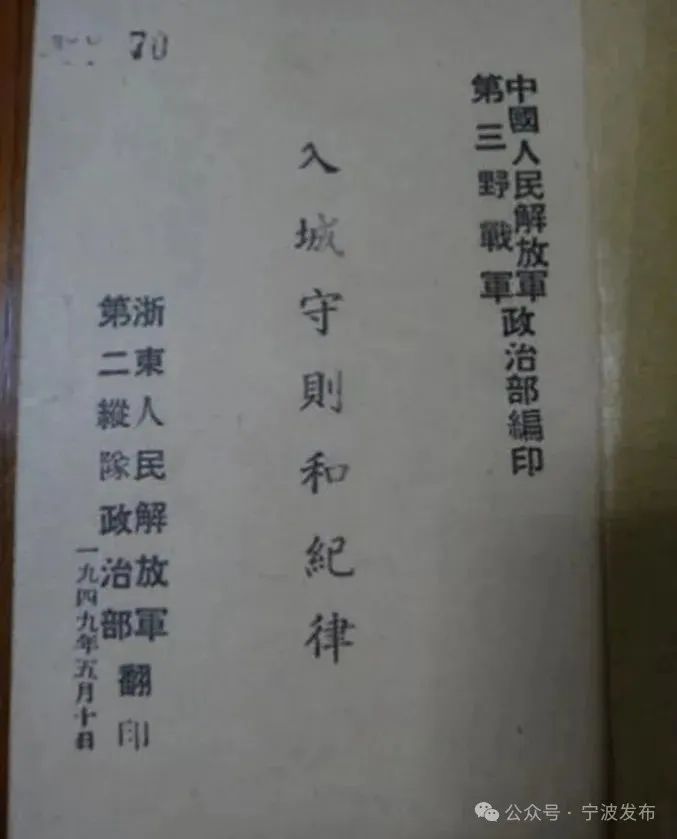 70
中國人民解放軍
第三野戰軍
政治部編印
入城守則和紀律
浙東人民解放軍
第二縱隊政治部
翻印
一九四九年五月十日
公众号 · 宁波发布